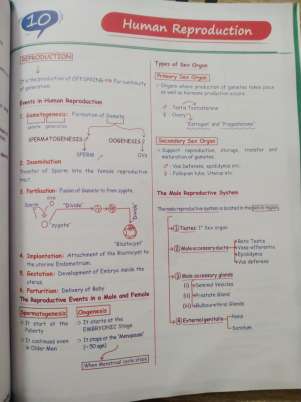 10
Human Reproduction
REPRODUCTION
It is the production of OFFSPRING for continuity
of generation
Events in Human Reproduction
1. Gametogenesis: Formation of Gamete
gamete generation
SPERMATOGENESIS
OOGENESIS
SPERM
OVA
2. Insemination
Transfer of Sperm into the female reproductive
tract.
3. Fertilisation- Fusion of Gamete to from zygote.
Sperm
"Divide"
"Divide"
"Zygote"
"Blastocyst"
4. Implantation: Attachment of the Blastocyst to
the uterine Endometrium.
5. Gestation: Development of Embryo inside the
uterus.
6. Parturition: Delivery of Baby
The Reproductive Events in a Male and Female
Spermatogenesis
It start at the
Puberty
It continued even
Older Men
Oogenesis
It starts at the
EMBRYONIC Stage
It stops at the 'Menopause'
(~50 age)
When Menstrual cycle stops
Types of Sex Organ
Primary Sex Organ
Organs where production of gametes takes place
as well as hormone production occurs
♂ Testis Testosterone
♀ Ovary
"Estrogen" and "Progesterone"
Secondary Sex Organ
Support reproduction, storage, transfer and
maturation of gametes.
♂ Vas Deferens, epididymis etc.
♀ Fallopian tube, Uterus etc.
The Male Reproductive System
The male reproductive system is located in the pelvis region.
1 Testes: 1° Sex organ
2 Male accessory ducts
Rete Testis
Vasa efferentia
Epididymis
Vas deferens
3 Male accessory glands
(i) Seminal Vesicles
(ii) Prostate Gland
(iii) Bulbourethral Glands
4 External genitalia
Penis
Scrotum